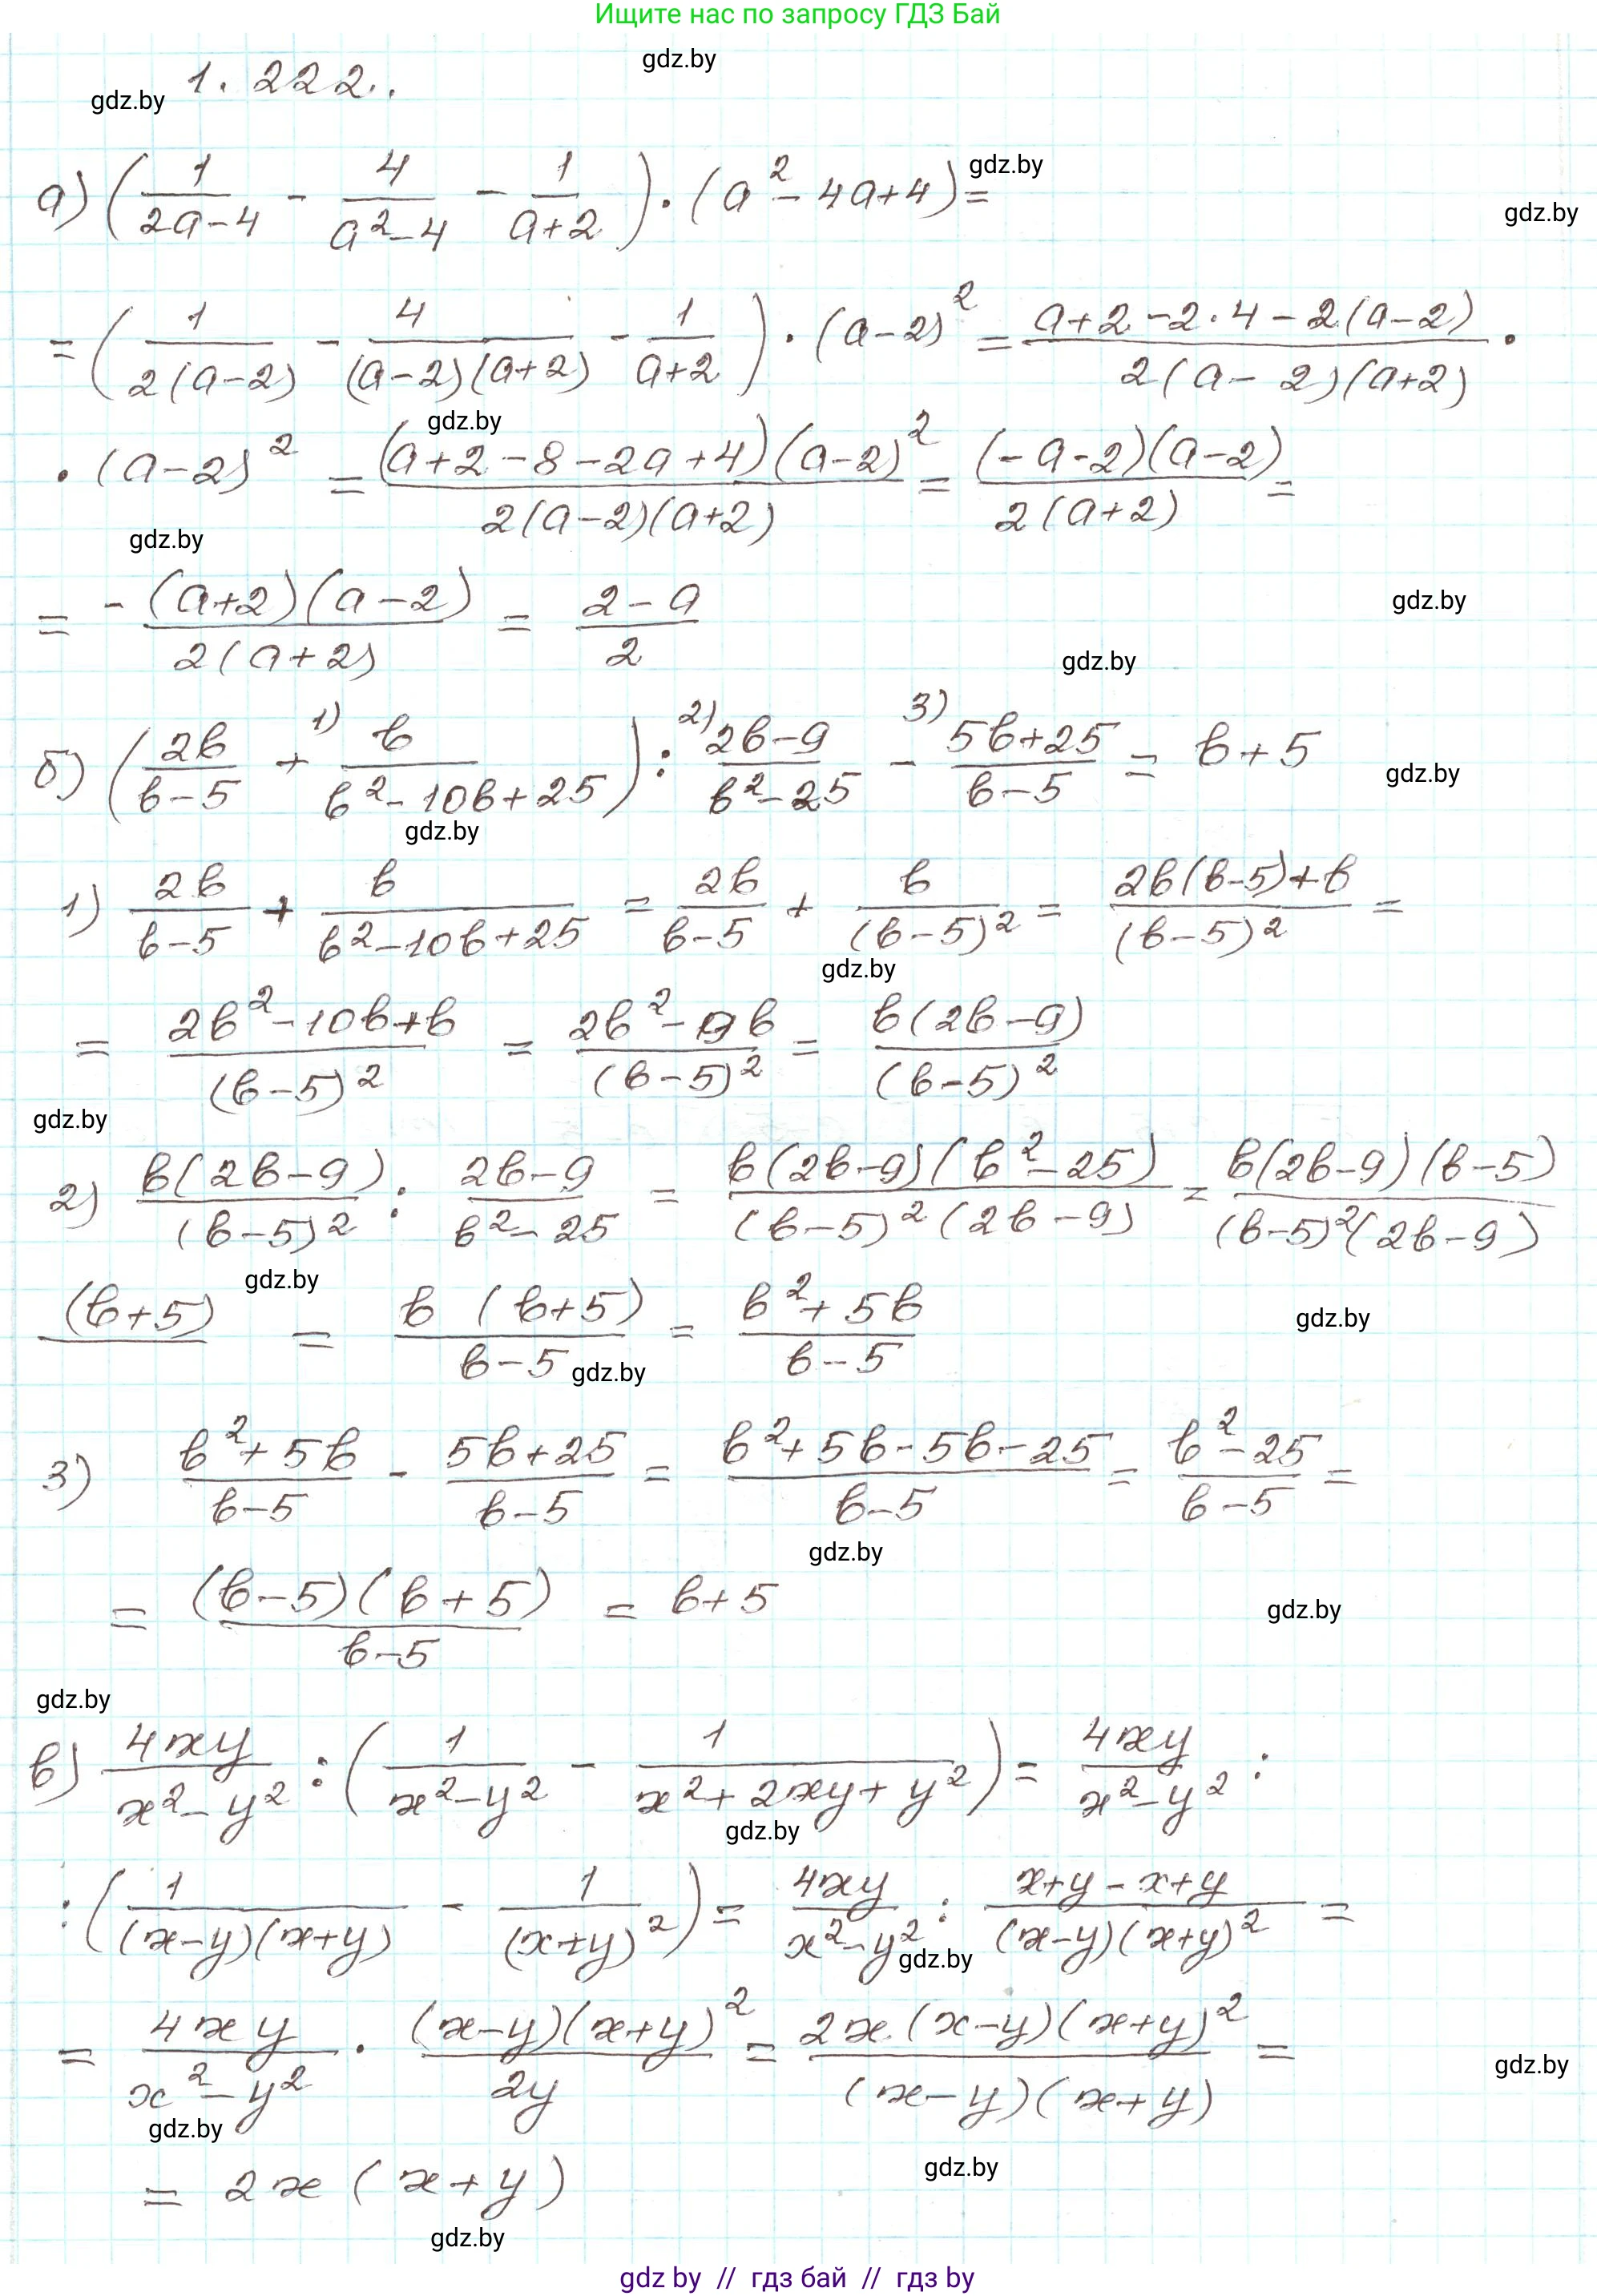 Ищите нас по запросу ГДЗ Бай
gdz.by
1.222.
gdz.by
а) (1/(2a-4) - 4/(a²-4) - 1/(a+2)) · (a²-4a+4) =
gdz.by
gdz.by
= (1/(2(a-2)) - 4/((a-2)(a+2)) - 1/(a+2)) · (a-2)² = (a+2-2·4-2(a-2))/(2(a-2)(a+2)) ·
gdz.by
· (a-2)² = ((a+2-8-2a+4)(a-2)²)/(2(a-2)(a+2)) = ((-a-2)(a-2))/(2(a+2)) =
gdz.by
= -((a+2)(a-2))/(2(a+2)) = (2-a)/2
gdz.by
gdz.by
б) (2b/(b-5) +¹⁾ b/(b²-10b+25)) :²⁾ (2b-9)/(b²-25) -³⁾ (5b+25)/(b-5) = b+5
gdz.by
gdz.by
1) 2b/(b-5) + b/(b²-10b+25) = 2b/(b-5) + b/(b-5)² = (2b(b-5)+b)/(b-5)² =
gdz.by
= (2b²-10b+b)/(b-5)² = (2b²-9b)/(b-5)² = (b(2b-9))/(b-5)²
gdz.by
2) (b(2b-9))/(b-5)² : (2b-9)/(b²-25) = (b(2b-9)(b²-25))/((b-5)²(2b-9)) = (b(2b-9)(b-5))/((b-5)²(2b-9))
gdz.by
(b+5) = (b(b+5))/(b-5) = (b²+5b)/(b-5)
gdz.by
gdz.by
3) (b²+5b)/(b-5) - (5b+25)/(b-5) = (b²+5b-5b-25)/(b-5) = (b²-25)/(b-5) =
gdz.by
= ((b-5)(b+5))/(b-5) = b+5
gdz.by
gdz.by
в) 4xy/(x²-y²) : (1/(x²-y²) - 1/(x²+2xy+y²)) = 4xy/(x²-y²) :
gdz.by
: (1/((x-y)(x+y)) - 1/(x+y)²) = 4xy/(x²-y²) : (x+y-x+y)/((x-y)(x+y)²) =
gdz.by
= 4xy/(x²-y²) · ((x-y)(x+y)²)/2y = (2x·(x-y)(x+y)²)/((x-y)(x+y)) =
gdz.by
gdz.by
= 2x(x+y)
gdz.by
gdz.by
gdz by // гдз бай // гдз by